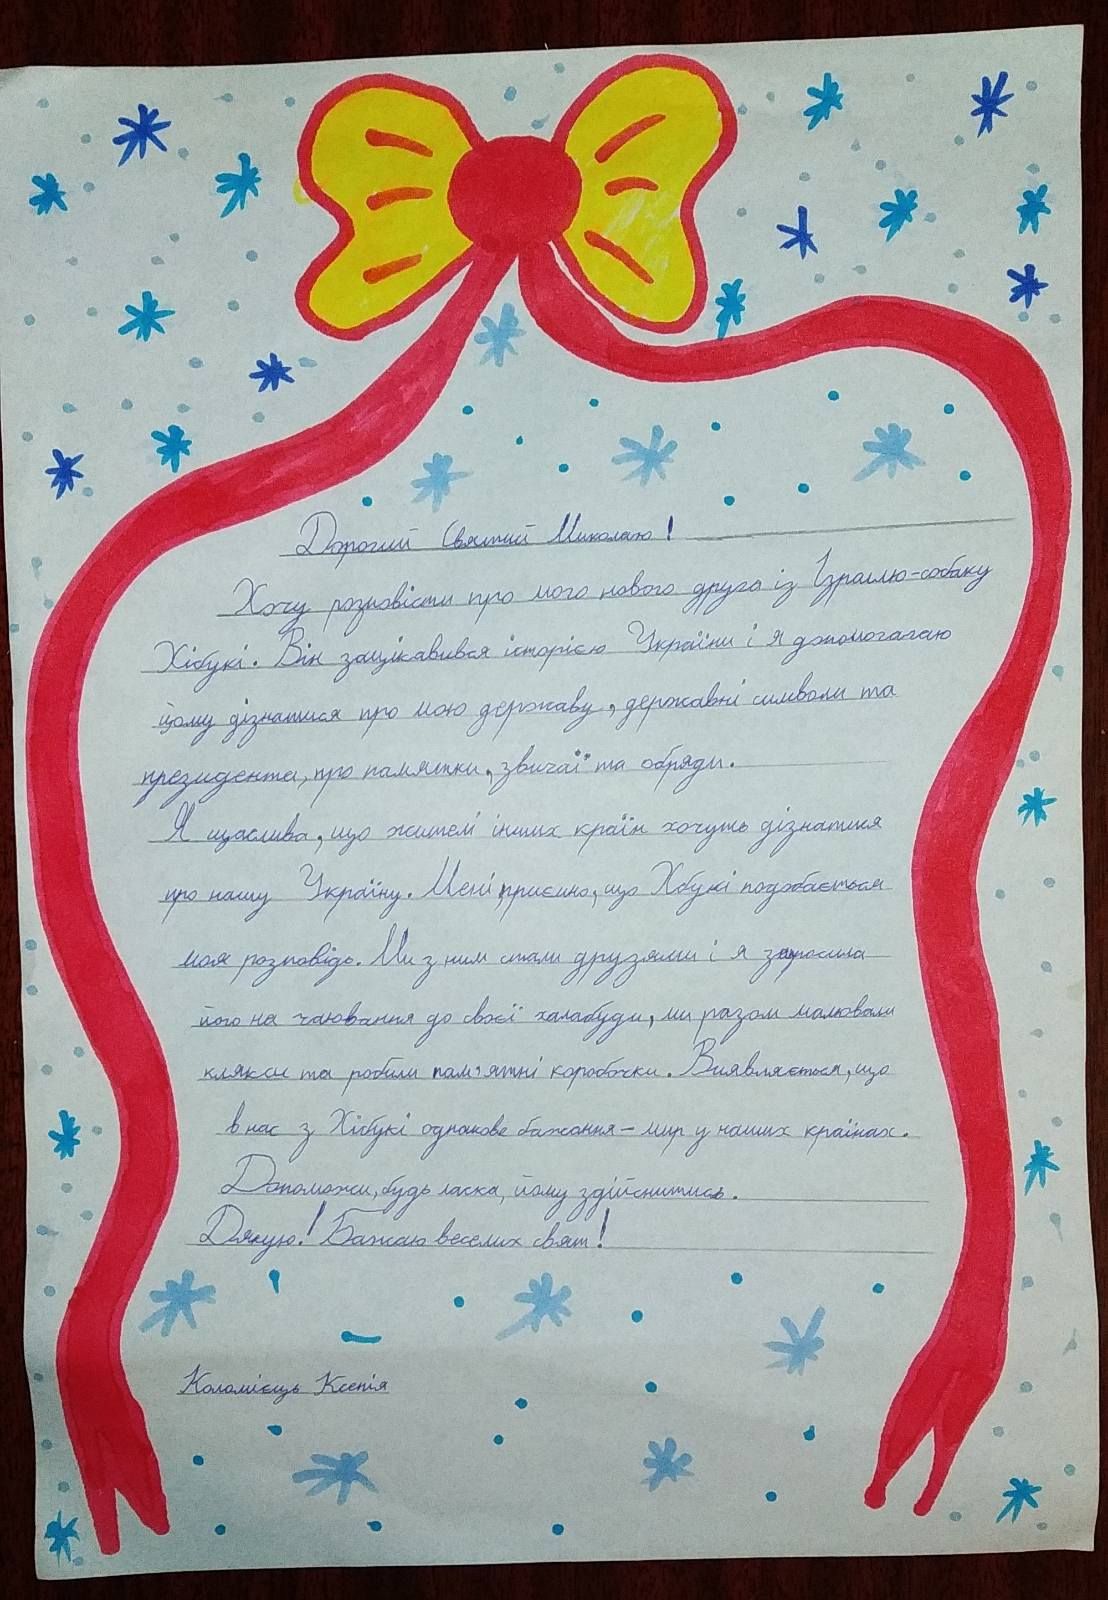 Дорогий Святий Миколаю!
Хочу розповісти про мого нового друга із Ізраілю-собаку
Хібукі. Він зацікавився історією України і я допомагаю
йому дізнатися про мою державу, державні символи та
президента, про памятки, звичаї та обряди.
Я щаслива, що жителі інших країн хочуть дізнатися
про нашу Україну. Мені приємно, що Хбукі подобається
моя розповідь. Ми з ним стали друзями і я запросила
його на чаювання до своєї халабуди, ми разом малювали
клякси та робили пам'ятні коробочки. Виявляється, що
в нас з Хібукі однакове бажання – мир у наших країнах.
Допоможи, будь ласка, йому здійснитись.
Дякую! Бажаю веселих свят!
Коломієць Ксенія